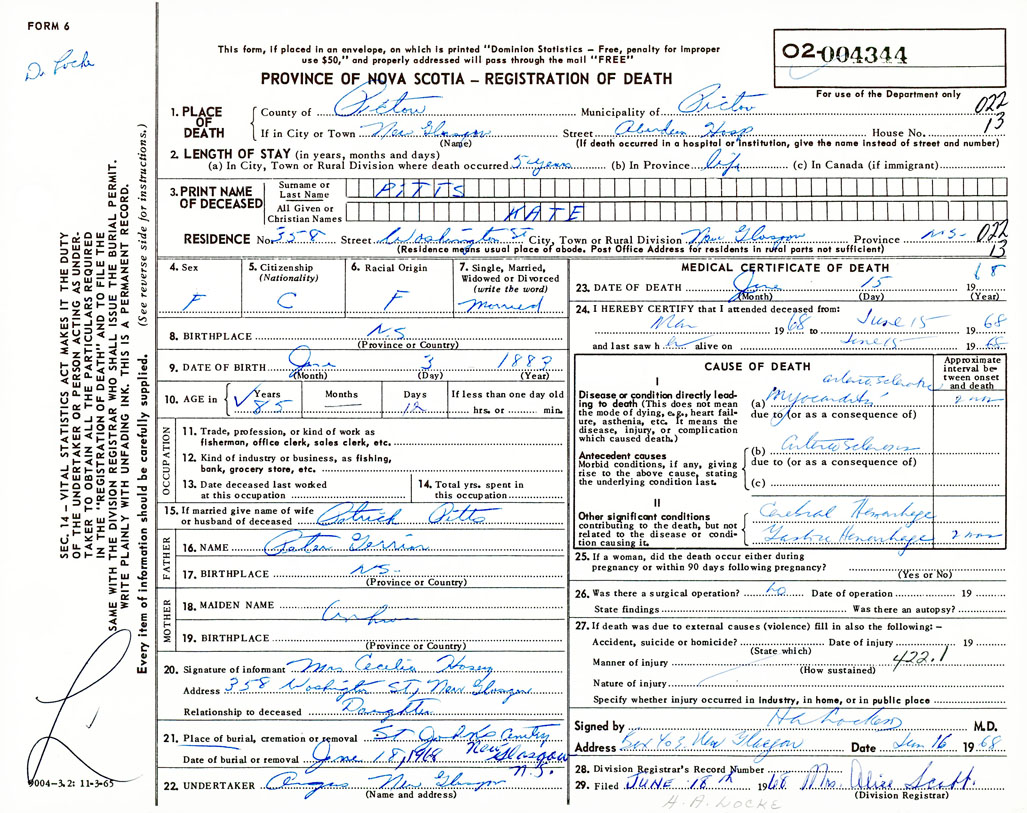 FORM 6
D. Locke
This form, if placed in an envelope, on which is printed "Dominion Statistics — Free, penalty for improper
use $50," and properly addressed will pass through the mail "FREE"
02-004344
PROVINCE OF NOVA SCOTIA — REGISTRATION OF DEATH
For use of the Department only
022
13
1. PLACE OF DEATH
County of Pictou Municipality of Pictou
If in City or Town New Glasgow Street Aberdeen Hosp House No.
(Name) (If death occurred in a hospital or institution, give the name instead of street and number)
2. LENGTH OF STAY (in years, months and days)
(a) In City, Town or Rural Division where death occurred 5 years (b) In Province life (c) In Canada (if immigrant)
3. PRINT NAME OF DECEASED
Surname or Last Name PITTS
All Given or Christian Names KATE
RESIDENCE No. 358 Street Washington St City, Town or Rural Division New Glasgow Province N.S. 022
13
(Residence means usual place of abode. Post Office Address for residents in rural parts not sufficient)
4. Sex F
5. Citizenship (Nationality) C
6. Racial Origin F
7. Single, Married, Widowed or Divorced (write the word) Married
8. BIRTHPLACE N.S.
(Province or Country)
9. DATE OF BIRTH June 3 1883
(Month) (Day) (Year)
10. AGE in Years 85 Months — Days 12 If less than one day old hrs. or min.
OCCUPATION
11. Trade, profession, or kind of work as
fisherman, office clerk, sales clerk, etc.
12. Kind of industry or business, as fishing,
bank, grocery store, etc.
13. Date deceased last worked
at this occupation
14. Total yrs. spent in
this occupation
15. If married give name of wife
or husband of deceased Patrick Pitts
FATHER
16. NAME Peter
17. BIRTHPLACE N.S.
(Province or Country)
MOTHER
18. MAIDEN NAME
19. BIRTHPLACE
(Province or Country)
20. Signature of informant Mrs Cecelia
Address 358 Washington St, New Glasgow
Relationship to deceased Daughter
21. Place of burial, cremation or removal St John's Cemetry
New Glasgow
N.S.
Date of burial or removal June 18, 1968
22. UNDERTAKER Angus New Glasgow
(Name and address)
MEDICAL CERTIFICATE OF DEATH
23. DATE OF DEATH June 15 19 68
(Month) (Day) (Year)
24. I HEREBY CERTIFY that I attended deceased from:
Mar 1968 to June 15 1968
and last saw h er alive on June 15 1968
CAUSE OF DEATH
Approximate interval between onset and death
I
Disease or condition directly leading to death (This does not mean
the mode of dying, e.g., heart failure, asthenia, etc. It means the
disease, injury, or complication
which caused death.)
arteriosclerotic
(a) Myocarditis
due to (or as a consequence of)
Antecedent causes
Morbid conditions, if any, giving
rise to the above cause, stating
the underlying condition last.
(b) Arteriosclerosis
due to (or as a consequence of)
(c)
II
Other significant conditions
contributing to the death, but not
related to the disease or condition causing it.
Cerebral Hemorrhage
Gastric Hemorrhage
25. If a woman, did the death occur either during
pregnancy or within 90 days following pregnancy?
(Yes or No)
26. Was there a surgical operation? no Date of operation 19
State findings Was there an autopsy?
27. If death was due to external causes (violence) fill in also the following: —
Accident, suicide or homicide? Date of injury 19
(State which)
Manner of injury 422.1
(How sustained)
Nature of injury
Specify whether injury occurred in industry, in home, or in public place
Signed by H A Locke M.D.
Address Box 403, New Glasgow Date Jun 16 1968
28. Division Registrar's Record Number
29. Filed JUNE 18th 1968 Mrs. Alice Scott.
(Division Registrar)
H. A. LOCKE
SEC. 14 — VITAL STATISTICS ACT MAKES IT THE DUTY
OF THE UNDERTAKER OR PERSON ACTING AS UNDERTAKER TO OBTAIN ALL THE PARTICULARS REQUIRED
IN THE "REGISTRATION OF DEATH" AND TO FILE THE
SAME WITH THE DIVISION REGISTRAR WHO SHALL ISSUE THE BURIAL PERMIT.
WRITE PLAINLY WITH UNFADING INK. THIS IS A PERMANENT RECORD.
Every item of information should be carefully supplied. (See reverse side for instructions.)
9004-3.2: 11-3-65